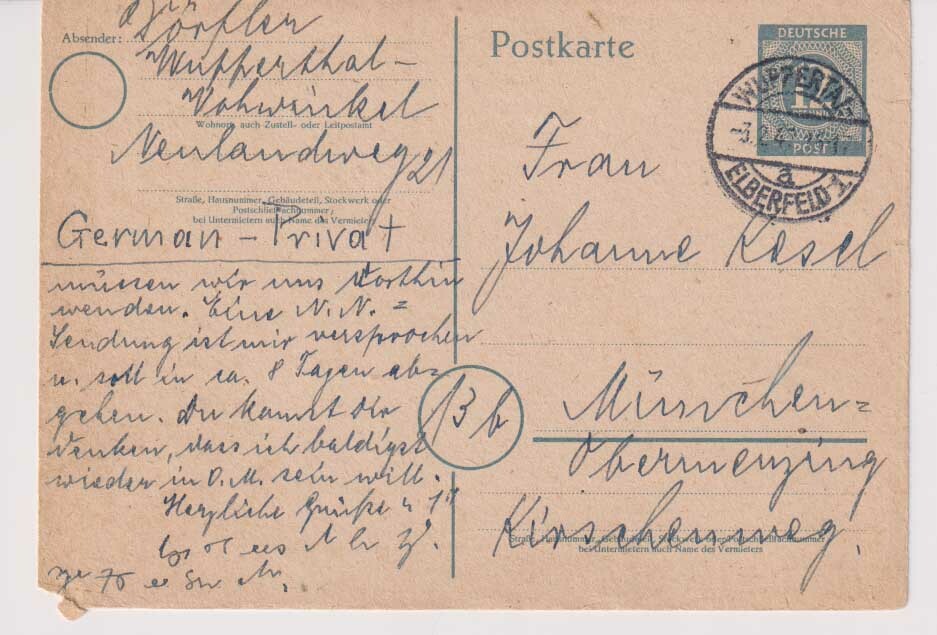 Absender: Dörfler
Wupperthal-
Vohwinkel
Wohnort, auch Zustell- oder Leitpostamt
Neulandweg 21
Straße, Hausnummer, Gebäudeteil, Stockwerk oder
Postschließfachnummer;
bei Untermietern auch Name des Vermieters
German - Privat
müssen wir uns dorthin
wenden. Eine N.N. =
Sendung ist mir versprochen
u. soll in ca. 8 Tagen ab=
gehen. Du kannst dir
denken, dass ich baldigst
wieder in O.M. sein will.
Herzliche Grüße u.
Postkarte
DEUTSCHE
12
PFENNIG
POST
WUPPERTAL-
a
ELBERFELD 1
Frau
Johanne Kesel
13b
München=
Obermenzing
Kirschenweg.
Straße, Hausnummer, Gebäudeteil, Stockwerk oder Postschließfachnummer;
bei Untermietern auch Name des Vermieters